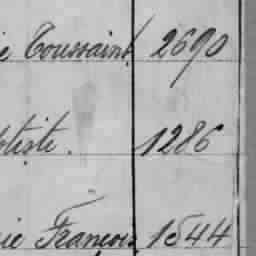 ie Toussaint 2690
tiste. 1286
ie François 1544